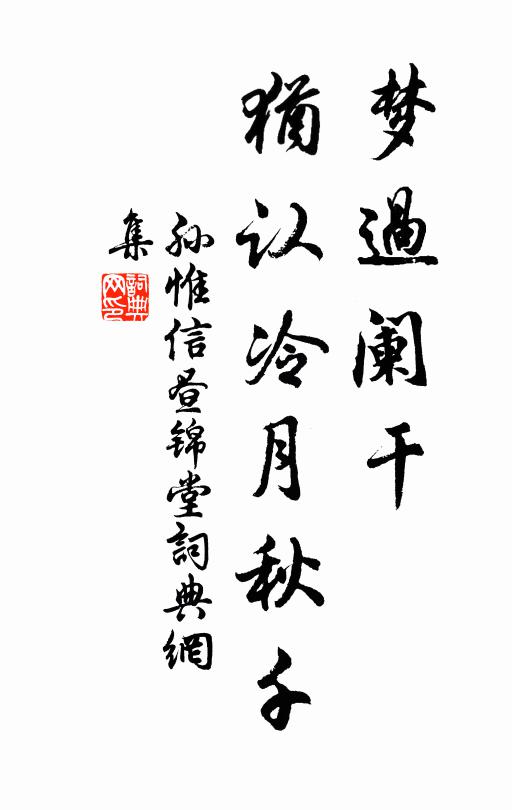 梦过阑干
犹认冷月秋千
孙惟信昼锦堂詞典網
集
詞典
网印